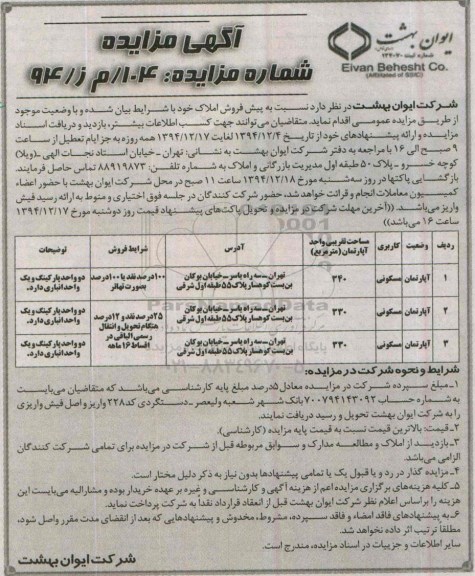 ایوان بهشت
(سهامی خاص)
شماره ثبت: ۲۳۴۰۷۰
Eivan Behesht Co.
(Affiliated of SSIC)
آگهی مزایده
شماره مزایده: ۱۰۴/م ز/۹۴
شرکت ایوان بهشت در نظر دارد نسبت به پیش فروش املاک خود با شرایط بیان شده و با وضعیت موجود
از طریق مزایده عمومی اقدام نماید. متقاضیان می‌توانند جهت کسب اطلاعات بیشتر، بازدید و دریافت اسناد
مزایده و ارائه پیشنهادهای خود از تاریخ ۱۳۹۴/۱۲/۴ لغایت ۱۳۹۴/۱۲/۱۷ همه روزه به جز ایام تعطیل از ساعت
۹ صبح الی ۱۶ با مراجعه به دفتر شرکت ایوان بهشت به نشانی: تهران - خیابان استاد نجات الهی - (ویلا)
کوچه خسرو - پلاک ۵۰ طبقه اول مدیریت بازرگانی و املاک به شماره تلفن: ۸۸۹۱۹۸۷۳ تماس حاصل فرمایند.
بازگشایی پاکتها در روز سه‌شنبه مورخ ۱۳۹۴/۱۲/۱۸ ساعت ۱۱ صبح در محل شرکت ایوان بهشت با حضور اعضاء
کمیسیون معاملات انجام و قرائت خواهد شد، حضور شرکت کنندگان در جلسه فوق اختیاری و منوط به ارائه رسید فیش
واریز می‌باشد. ((آخرین مهلت شرکت در مزایده و تحویل پاکت‌های پیشنهاد قیمت روز دوشنبه مورخ ۱۳۹۴/۱۲/۱۷
ساعت ۱۶ می‌باشد))
ردیف وضعیت کاربری مساحت تقریبی واحد آپارتمان (مترمربع) آدرس شرایط فروش توضیحات
۱ آپارتمان مسکونی ۳۴۰ تهران-سه راه یاسر-خیابان بوکان بن‌بست کوهسار پلاک ۵۵ طبقه اول شرقی ۱۰۰درصد نقد یا ۱۰۰درصد بصورت تهاتر دو واحد پارکینگ و یک واحد انباری دارد.
۲ آپارتمان مسکونی ۳۳۰ تهران-سه راه یاسر-خیابان بوکان بن‌بست کوهسار پلاک ۵۵ طبقه اول شرقی ۲۵درصد نقد و ۱۲درصد هنگام تحویل و انتقال رسمی الباقی در اقساط ۱۶ ماهه دو واحد پارکینگ و یک واحد انباری دارد.
۳ آپارتمان مسکونی ۳۳۰ تهران-سه راه یاسر-خیابان بوکان بن‌بست کوهسار پلاک ۵۵ طبقه اول شرقی دو واحد پارکینگ و یک واحد انباری دارد.
شرایط و نحوه شرکت در مزایده:
۱-مبلغ سپرده شرکت در مزایده معادل ۵درصد مبلغ پایه کارشناسی می‌باشد که متقاضیان می‌بایست
به شماره حساب ۷۰۰۷۹۴۱۴۳۰۹۲ بانک شهر شعبه ولیعصر-دستگردی کد ۲۲۸ واریز و اصل فیش واریزی
را به شرکت ایوان بهشت تحویل و رسید دریافت نمایند.
۲-قیمت: بالاترین قیمت نسبت به قیمت پایه مزایده (کارشناسی).
۳-بازدید از املاک و مطالعه مدارک و سوابق مربوطه قبل از شرکت در مزایده برای تمامی شرکت کنندگان
الزامی می‌باشد.
۴-مزایده گذار در رد و یا قبول یک یا تمامی پیشنهادها بدون نیاز به ذکر دلیل مختار است.
۵-کلیه هزینه‌های برگزاری مزایده اعم از هزینه آگهی و کارشناسی و غیره بر عهده خریدار بوده و مشارالیه می‌بایست این
هزینه را بر اساس اعلام نظر شرکت ایوان بهشت قبل از انعقاد قرارداد نقداً به شرکت پرداخت نماید.
۶-به پیشنهادهای فاقد امضاء و فاقد سپرده، مشروط، مخدوش و پیشنهادهایی که بعد از انقضای مدت مقرر واصل شود،
مطلقاً ترتیب اثر داده نخواهد شد.
سایر اطلاعات و جزییات در اسناد مزایده، مندرج است.
شرکت ایوان بهشت